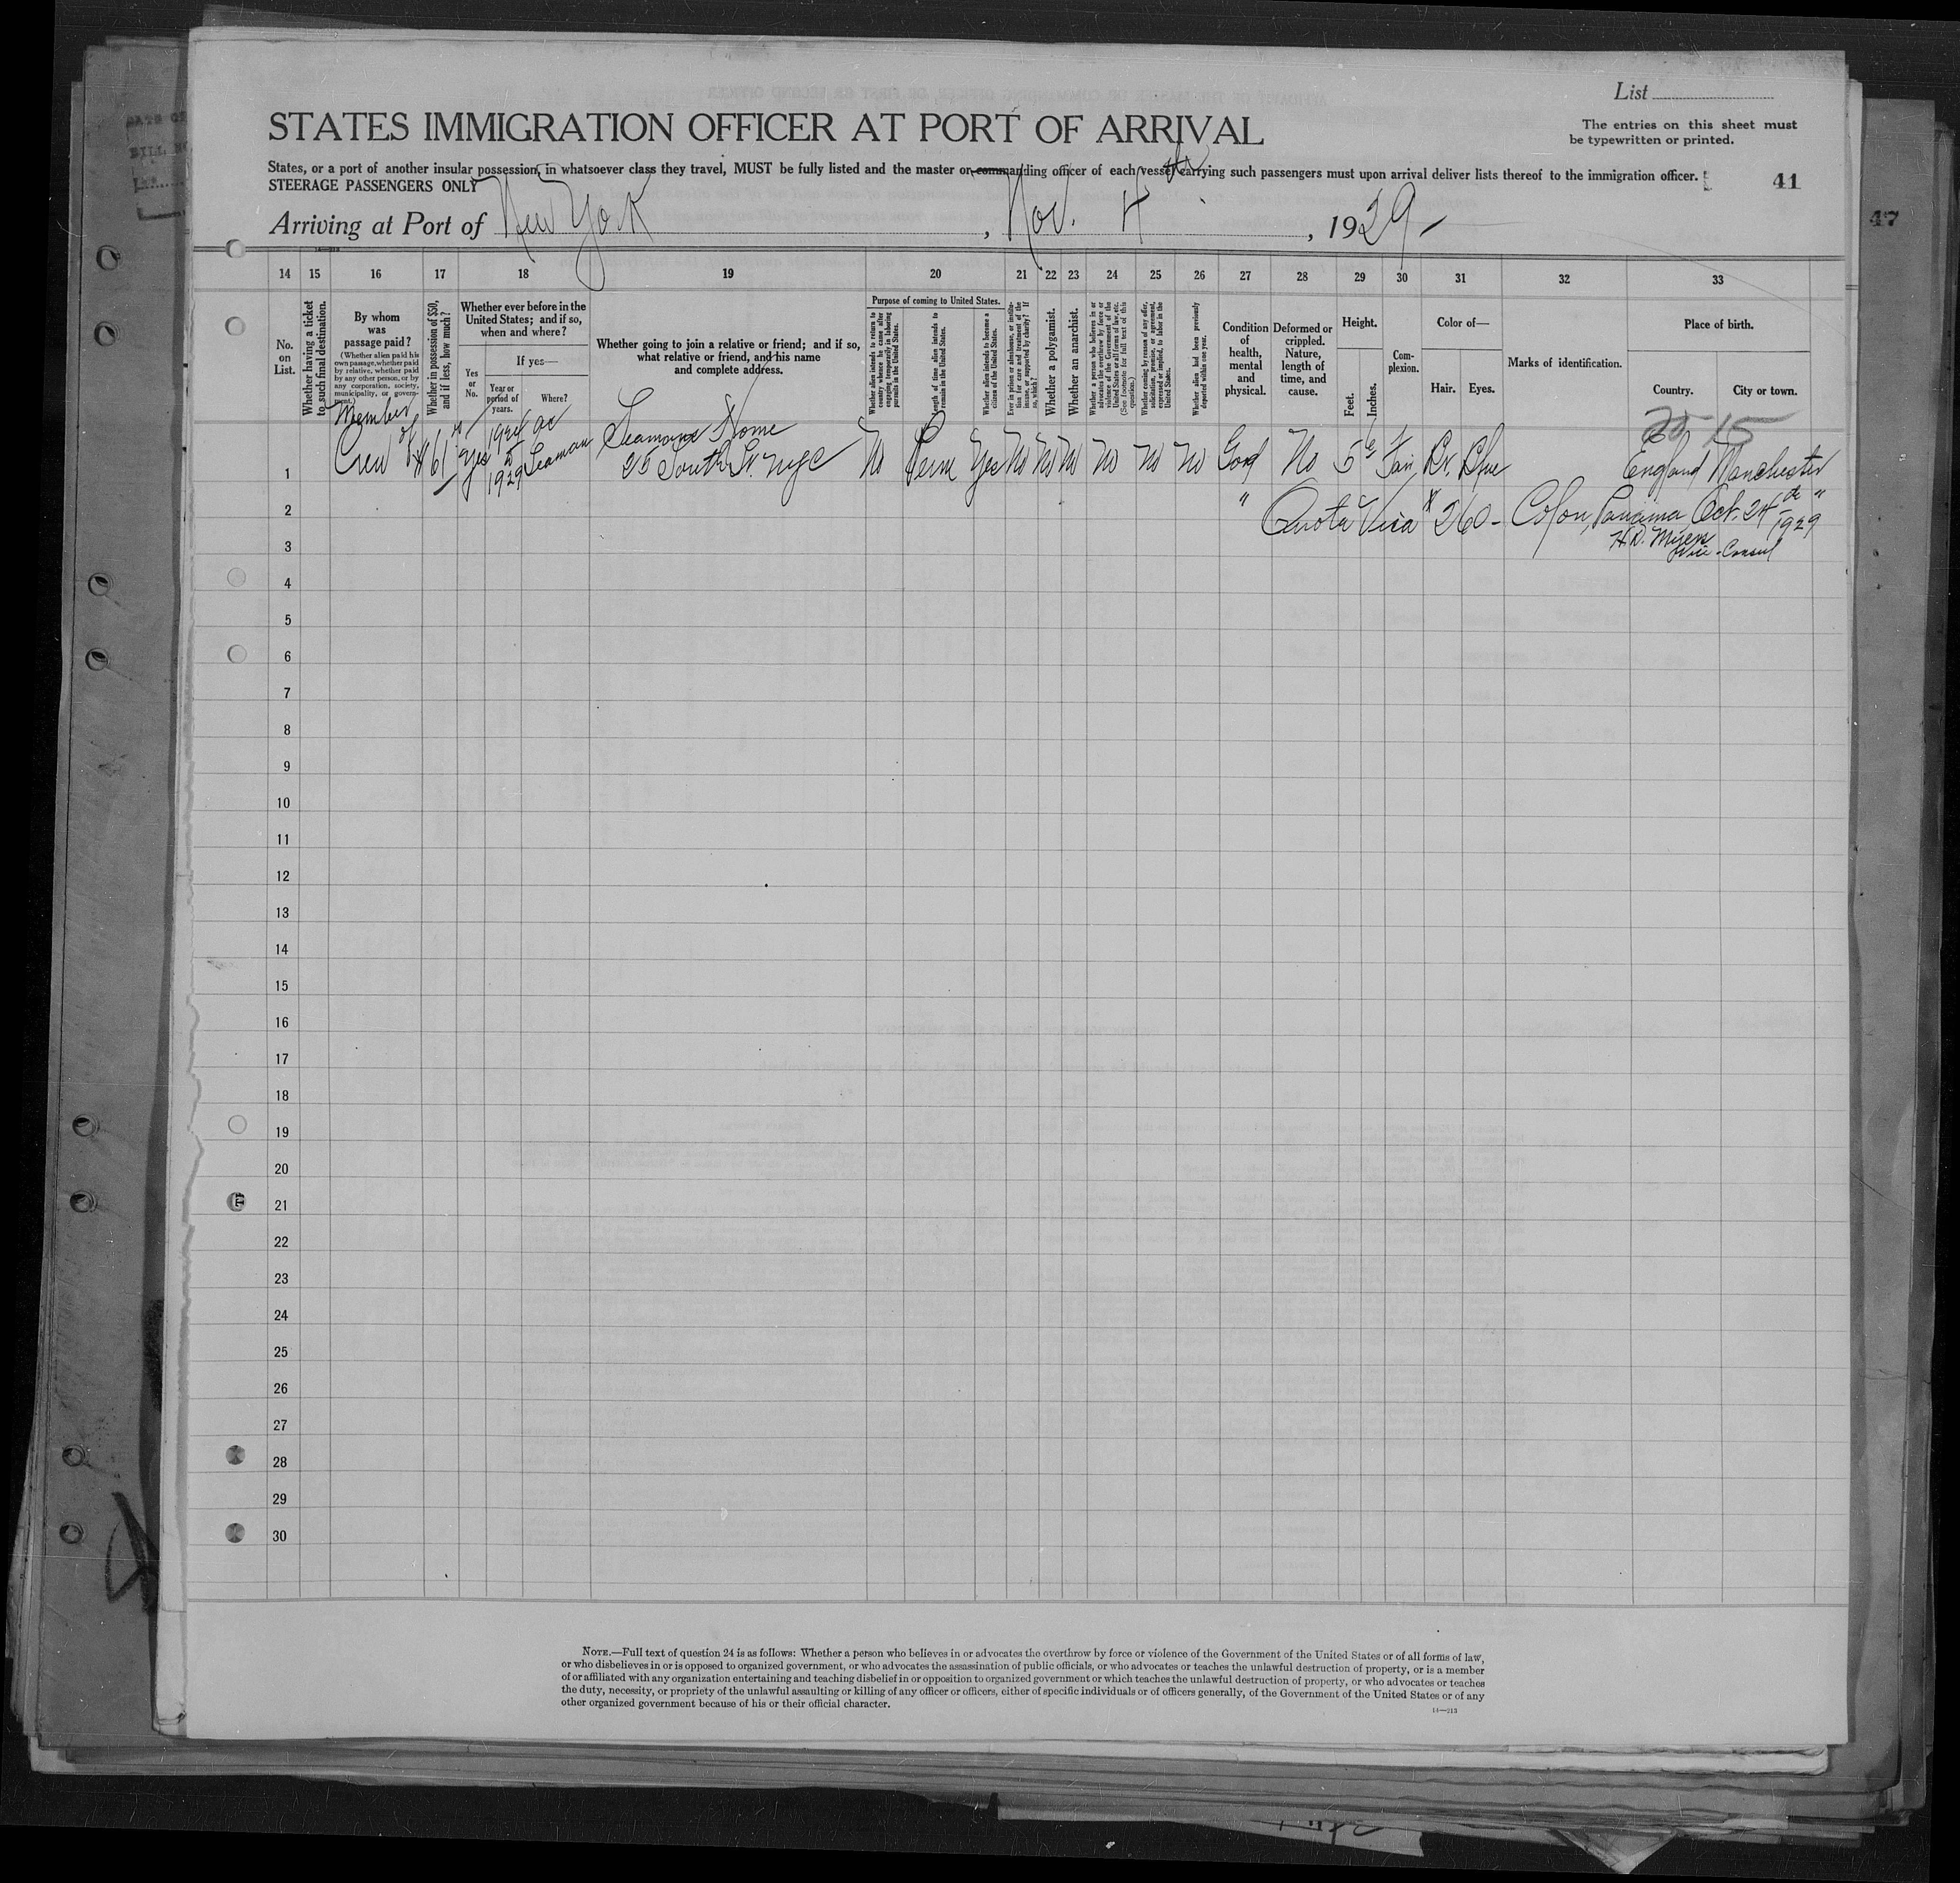 List
STATES IMMIGRATION OFFICER AT PORT OF ARRIVAL
The entries on this sheet must
be typewritten or printed.
States, or a port of another insular possession, in whatsoever class they travel, MUST be fully listed and the master or commanding officer of each vessel carrying such passengers must upon arrival deliver lists thereof to the immigration officer.
STEERAGE PASSENGERS ONLY
41
47
Arriving at Port of New York, Nov. 4th, 1929
14 15 16 17 18 19 20 21 22 23 24 25 26 27 28 29 30 31 32 33
No. on List.
Whether having a ticket to such final destination.
By whom was passage paid?
(Whether alien paid his own passage, whether paid by relative, whether paid by any other person, or by any corporation, society, municipality, or government.)
Whether in possession of $50, and if less, how much?
Whether ever before in the United States; and if so, when and where?
Yes or No.
If yes—
Year or period of years.
Where?
Whether going to join a relative or friend; and if so, what relative or friend, and his name and complete address.
Purpose of coming to United States.
Whether alien intends to return to country whence he came after engaging temporarily in laboring pursuits in the United States.
Length of time alien intends to remain in the United States.
Whether alien intends to become a citizen of the United States.
Ever in prison or almshouse, or institution for care and treatment of the insane, or supported by charity? If so, which?
Whether a polygamist.
Whether an anarchist.
Whether a person who believes in or advocates the overthrow by force or violence of the Government of the United States or all forms of law, etc. (See footnote for full text of this question.)
Whether coming by reason of any offer, solicitation, promise, or agreement, expressed or implied, to labor in the United States.
Whether alien had been previously deported within one year.
Condition of health, mental and physical.
Deformed or crippled. Nature, length of time, and cause.
Height.
Feet.
Inches.
Complexion.
Color of—
Hair.
Eyes.
Marks of identification.
Place of birth.
Country.
City or town.
1 Member of Crew $61 Yes 1924 to 1929 as Seaman Seamans Home 25 South St. NYC No Perm Yes No No No No No No Good No 5 6 Fair Br. Blue England Manchester
2 " Quota Visa #260 - Colon, Panama, Oct. 24 1929
3 H.D. Myers Vice-Consul
4
5
6
7
8
9
10
11
12
13
14
15
16
17
18
19
20
21
22
23
24
25
26
27
28
29
30
NOTE.—Full text of question 24 is as follows: Whether a person who believes in or advocates the overthrow by force or violence of the Government of the United States or of all forms of law,
or who disbelieves in or is opposed to organized government, or who advocates the assassination of public officials, or who advocates or teaches the unlawful destruction of property, or is a member
of or affiliated with any organization entertaining and teaching disbelief in or opposition to organized government or which teaches the unlawful destruction of property, or who advocates or teaches
the duty, necessity, or propriety of the unlawful assaulting or killing of any officer or officers, either of specific individuals or of officers generally, of the Government of the United States or of any
other organized government because of his or their official character.
14—213